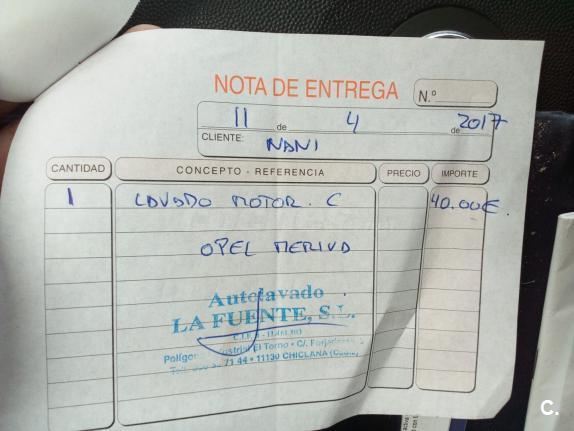 NOTA DE ENTREGA
N.º
11 de 4 de 2017
CLIENTE: NANI
CANTIDAD CONCEPTO - REFERENCIA PRECIO IMPORTE
1 LAVADO MOTOR. C 40.00€.
OPEL MERIVA
Autolavado
LA FUENTE, S.L.
C.I.F. B-
El Torno • C/.
71 44 • 11130 CHICLANA (Cádiz)
C.